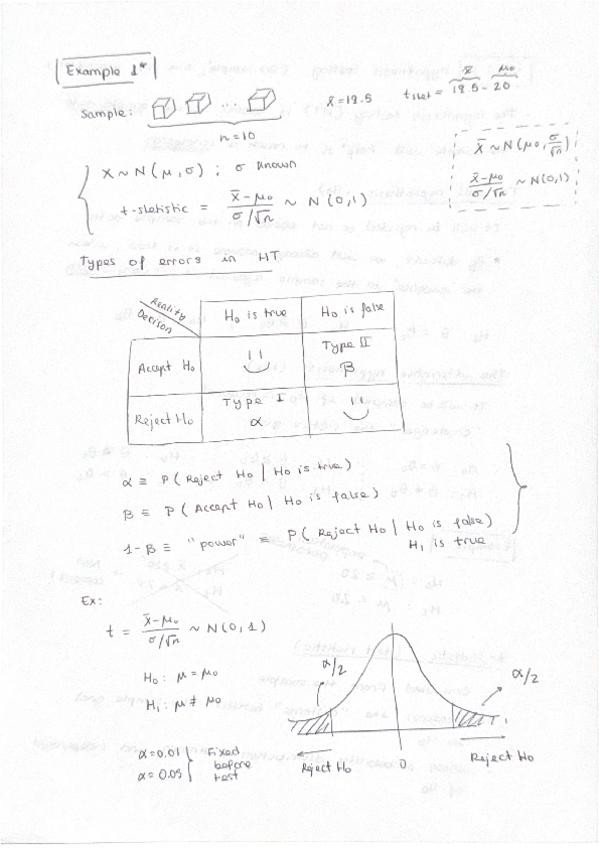 Example 1*
Sample: ...
n=10
x̄ = 19.5 t stat = 19.5 - 20
x̄ μ₀
X ~ N(μ, σ) ; σ known
t-statistic = x̄-μ₀ / σ/√n ~ N(0,1)
X̄ ~ N(μ₀, σ/√n)
x̄-μ₀ / σ/√n ~ N(0,1)
Types of errors in HT
Reality
Decison
H₀ is true H₀ is false
Accept H₀ Type II
β
Reject H₀ Type I
α
α ≡ P( Reject H₀ | H₀ is true)
β ≡ P( Accept H₀ | H₀ is false)
1-β ≡ "power" ≡ P( Reject H₀ | H₀ is false)
H₁ is true
Ex:
t = x̄-μ₀ / σ/√n ~ N(0,1)
H₀: μ = μ₀
H₁: μ ≠ μ₀
α=0.01
α=0.05
Fixed
before
test
α/2 α/2
Reject H₀ 0 Reject H₀